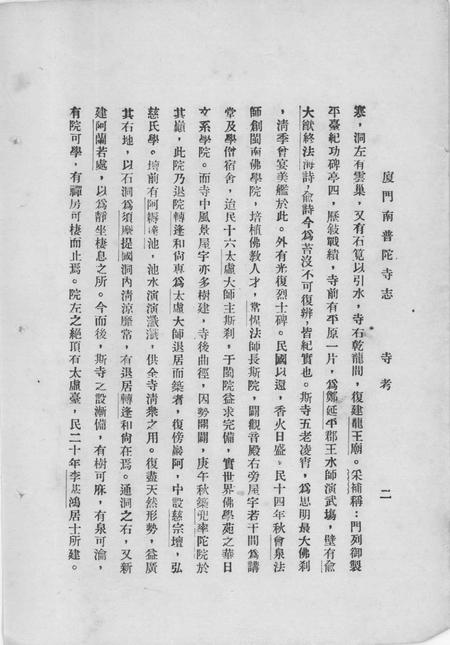 廈門南普陀寺志　寺考　二
寒，洞左有雲巢，又有石筧以引水，寺右乾龍間，復建龍王廟。采補稱：門列御製
平臺紀功碑亭四，歷敍戰績，寺前有平原一片，爲鄭延平郡王水師演武塲，壁有俞
大猷終法海詩，俞詩今爲苔沒不可復辨，皆紀實也。斯寺五老凌霄，爲思明最大佛剎
，清季曾宴美艦於此。外有光復烈士碑。民國以還，香火日盛。民十四年秋會泉法
師創閩南佛學院，培植佛教人才，常惺法師長斯院，闢觀音殿右旁屋宇若干間爲講
堂及學僧宿舍，迨民十六太虛大師主斯刹，于閩院益求完備，實世界佛學苑之華日
文系學院。而寺中風景屋宇亦多樹建，寺後曲徑，因勢開闢，庚午秋築兜率陀院於
其巔，此院乃退院轉逢和尙專爲太虛大師退居而築者，復傍巖阿，中設慈宗壇，弘
慈氏學。壇前有阿耨達池，池水演演瀫瀫，供全寺清衆之用。復盡天然形勢，益廣
其右地，以石洞爲須摩提國洞內清涼靡常，有退居轉逢和尙在焉。通洞之右，又新
建阿蘭若處，以爲靜坐棲息之所。今而後，斯寺之設漸備，有樹可庥，有泉可瀹，
有院可學，有禪房可棲而止焉。院左之絕頂有太虛臺，民二十年李基鴻居士所建。